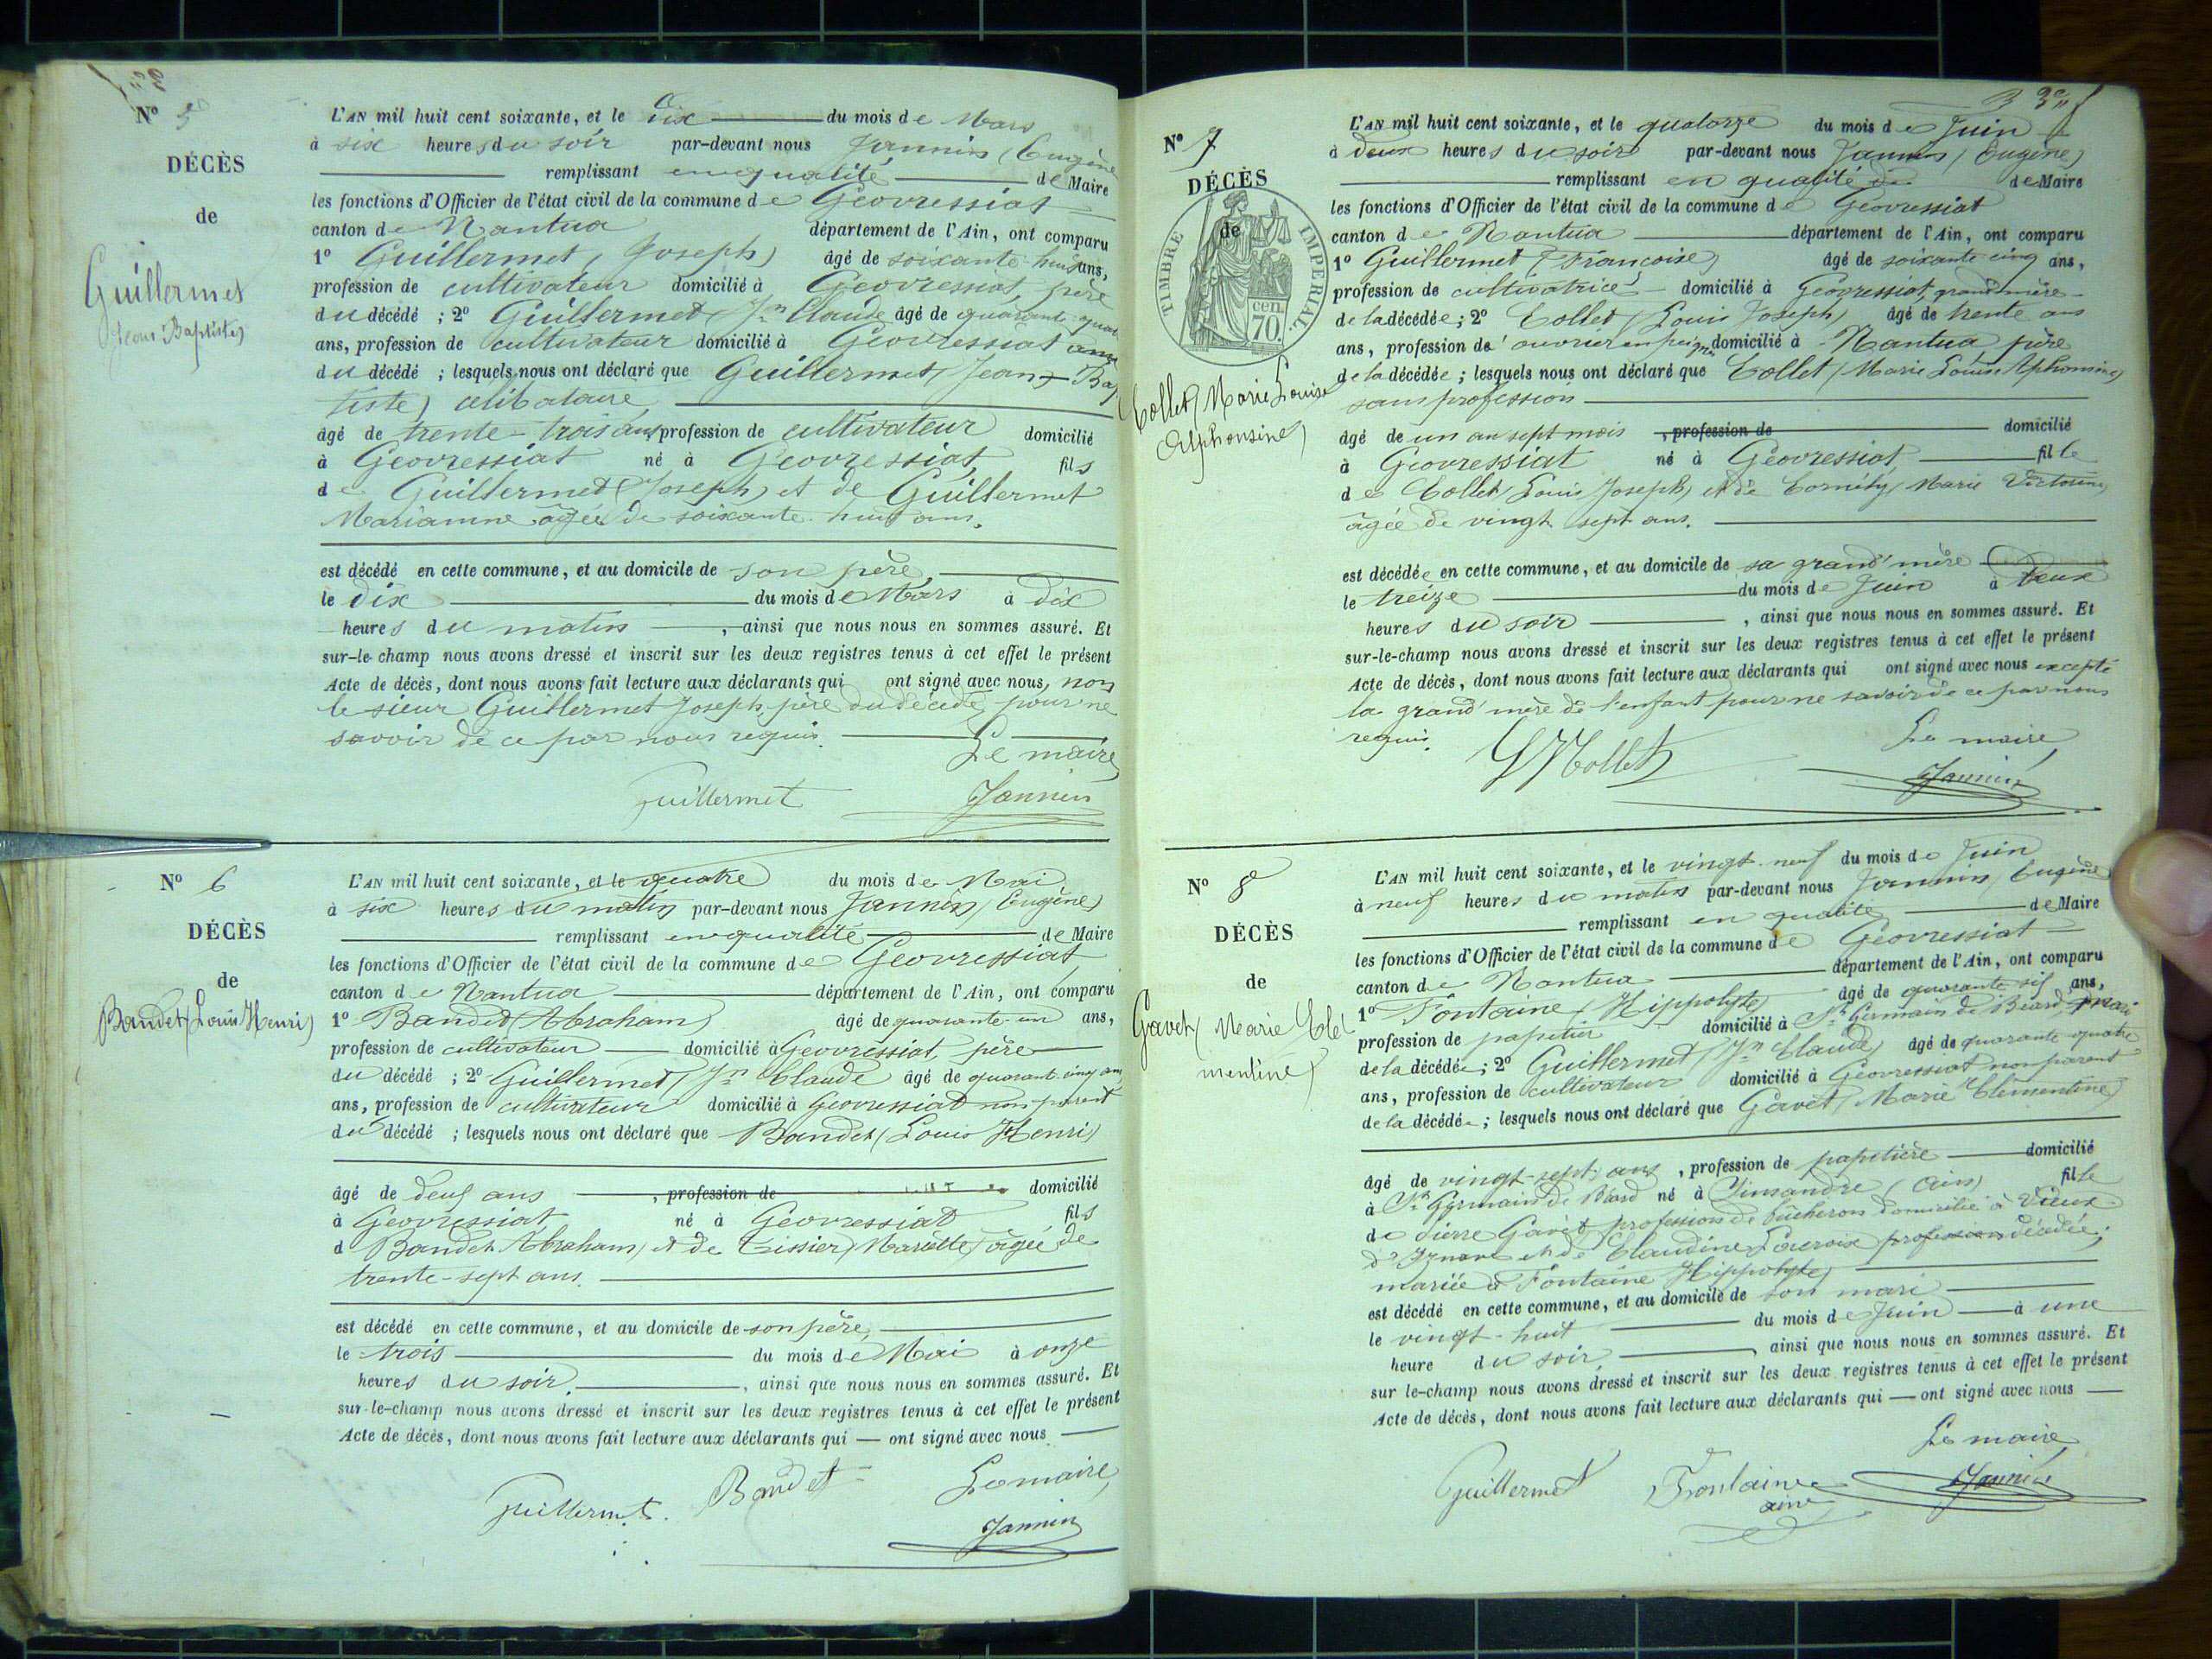 Nº 5
DÉCÈS
de
Guillermet
(Jean Baptiste)
L'AN mil huit cent soixante, et le dix du mois de Mars
à six heures du soir par-devant nous Jannin (Eugène)
remplissant en qualité de Maire
les fonctions d'Officier de l'état civil de la commune de Géovressiat
canton de Nantua département de l'Ain, ont comparu
1º Guillermet (Joseph) âgé de soixante-huit ans,
profession de cultivateur domicilié à Géovressiat, père
du décédé ; 2º Guillermet (Jn Claude âgé de quarante-quatre
ans, profession de cultivateur domicilié à Géovressiat ami
du décédé ; lesquels nous ont déclaré que Guillermet (Jean-Bap
tiste) célibataire
âgé de trente-trois ans, profession de cultivateur domicilié
à Géovressiat né à Géovressiat fils
de Guillermet (Joseph) et de Guillermet
Marianne âgée de soixante-huit ans.
est décédé en cette commune, et au domicile de son père,
le dix du mois de Mars à dix
heures du matin , ainsi que nous nous en sommes assuré. Et
sur-le-champ nous avons dressé et inscrit sur les deux registres tenus à cet effet le présent
Acte de décès, dont nous avons fait lecture aux déclarants qui ont signé avec nous, non
le sieur Guillermet Joseph père du décédé, pour ne
savoir de ce par nous requis.
Le maire,
Guillermet Jannin
Nº 6
DÉCÈS
de
Bandet (Louis Henri)
L'AN mil huit cent soixante, et le quatre du mois de Mai
à six heures du matin par-devant nous Jannin (Eugène)
remplissant en qualité de Maire
les fonctions d'Officier de l'état civil de la commune de Géovressiat
canton de Nantua département de l'Ain, ont comparu
1º Bandet (Abraham) âgé de quarante-un ans,
profession de cultivateur domicilié à Géovressiat, père
du décédé ; 2º Guillermet (Jn Claude âgé de quarante-cinq ans
ans, profession de cultivateur domicilié à Géovressiat non parent
du décédé ; lesquels nous ont déclaré que Bandet (Louis Henri)
âgé de deux ans , profession de domicilié
à Géovressiat né à Géovressiat fils
d Bandet Abraham) et de Tissier) Mariette) âgée de
trente-sept ans.
est décédé en cette commune, et au domicile de son père,
le trois du mois de Mai à onze
heures du soir. , ainsi que nous nous en sommes assuré. Et
sur-le-champ nous avons dressé et inscrit sur les deux registres tenus à cet effet le présent
Acte de décès, dont nous avons fait lecture aux déclarants qui — ont signé avec nous
Le maire,
Guillermet. Bandet
Jannin
Nº 7
DÉCÈS
de
TIMBRE IMPERIAL.
cen.
70.
Collet (Marie Louise
Alphonsine)
L'AN mil huit cent soixante, et le quatorze du mois de Juin
à deux heures du soir par-devant nous Jannin (Eugène)
remplissant en qualité de de Maire
les fonctions d'Officier de l'état civil de la commune de Géovressiat
canton de Nantua département de l'Ain, ont comparu
1º Guillermet (Françoise) âgé de soixante cinq ans,
profession de cultivatrice domicilié à Géovressiat, grand'mère
de la décédée ; 2º Collet (Louis Joseph) âgé de trente ans
ans, profession d'ouvrier en peignes domicilié à Nantua père
de la décédée ; lesquels nous ont déclaré que Collet (Marie Louise Alphonsine)
sans profession
âgé de un an sept mois , profession de domicilié
à Géovressiat né à Géovressiat fille
de Collet (Louis Joseph) et de Marie
âgée de vingt sept ans.
est décédée en cette commune, et au domicile de sa grand'mère
le treize du mois de Juin à Deux
heures du soir , ainsi que nous nous en sommes assuré. Et
sur-le-champ nous avons dressé et inscrit sur les deux registres tenus à cet effet le présent
Acte de décès, dont nous avons fait lecture aux déclarants qui ont signé avec nous excepté
la grand'mère de l'enfant pour ne savoir de ce par nous
requis.
Le maire,
Collet Jannin
Nº 8
DÉCÈS
de
Gavet (Marie Clé
mentine)
L'AN mil huit cent soixante, et le vingt-neuf du mois de Juin
à neuf heures du matin par-devant nous Jannin (Eugène
remplissant en qualité de Maire
les fonctions d'Officier de l'état civil de la commune de Géovressiat
canton de Nantua département de l'Ain, ont comparu
1º Fontaine (Hippolyte) âgé de quarante six ans,
profession de papetier domicilié à St Germain de Béard, mari
de la décédée ; 2º Guillermet (Jn Claude) âgé de quarante quatre
ans, profession de cultivateur domicilié à Géovressiat non parent
de la décédée ; lesquels nous ont déclaré que Gavet (Marie Clémentine)
âgé de vingt-sept ans , profession de papetière domicilié
à St Germain de Béard né à Simandre (Ain) fille
de Pierre Gavet profession de bûcheron domicilié à Vieux
d'Izenave et de Claudine décédée ;
mariée à Fontaine Hippolyte)
est décédé en cette commune, et au domicile de son mari
le vingt-huit du mois de Juin à une
heure du soir, , ainsi que nous nous en sommes assuré. Et
sur le-champ nous avons dressé et inscrit sur les deux registres tenus à cet effet le présent
Acte de décès, dont nous avons fait lecture aux déclarants qui — ont signé avec nous —
Le maire,
Guillermet Fontaine Jannin
ainé